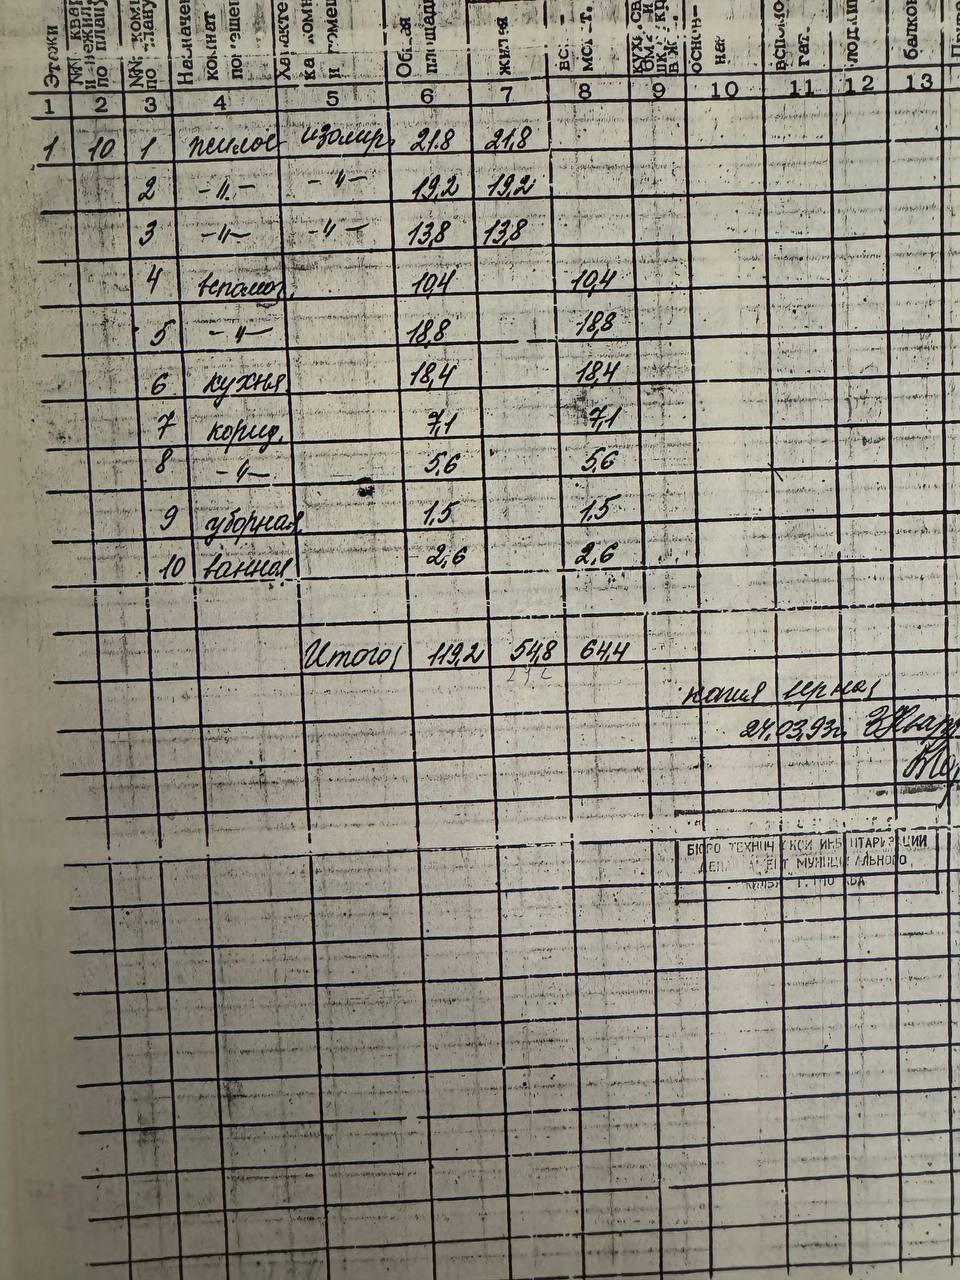 Этажи
NN кварт. и нежил по плану
NN комн по плану
Назначен комнат помещен
Характе ка комн и помещ
Общая площадь
жилая
вс мог т.
основ- на
вспомо гат.
лоджи
балкон
1 2 3 4 5 6 7 8 9 10 11 12 13
1 10 1 жилое изолир. 21.8 21,8
2 -"- -"- 19,2 19,2
3 -"- -"- 13,8 13,8
4 вспомог. 10,4 10,4
5 -"- 18,8 18,8
6 кухня 18,4 18,4
7 корид. 7,1 7,1
8 -"- 5,6 5,6
9 уборная 1,5 1,5
10 ванная 2,6 2,6
Итого: 119,2 54,8 64,4
копия верна
24.03.93г.
БЮРО ТЕХНИЧЕСКОЙ ИНВЕНТАРИЗАЦИИ
ДЕПАРТАМЕНТ МУНИЦИПАЛЬНОГО
ЖИЛЬЯ Г. МОСКВА